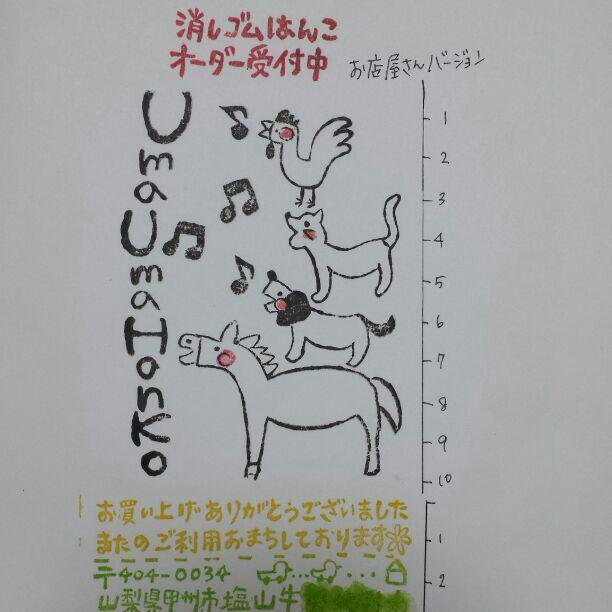 消しゴムはんこ
オーダー受付中
お店屋さんバージョン
UmaUmaHanKo
1
2
3
4
5
6
7
8
9
10
お買い上げありがとうございました
またのご利用おまちしております
1
〒404-0034
2
山梨県甲州市塩山牛